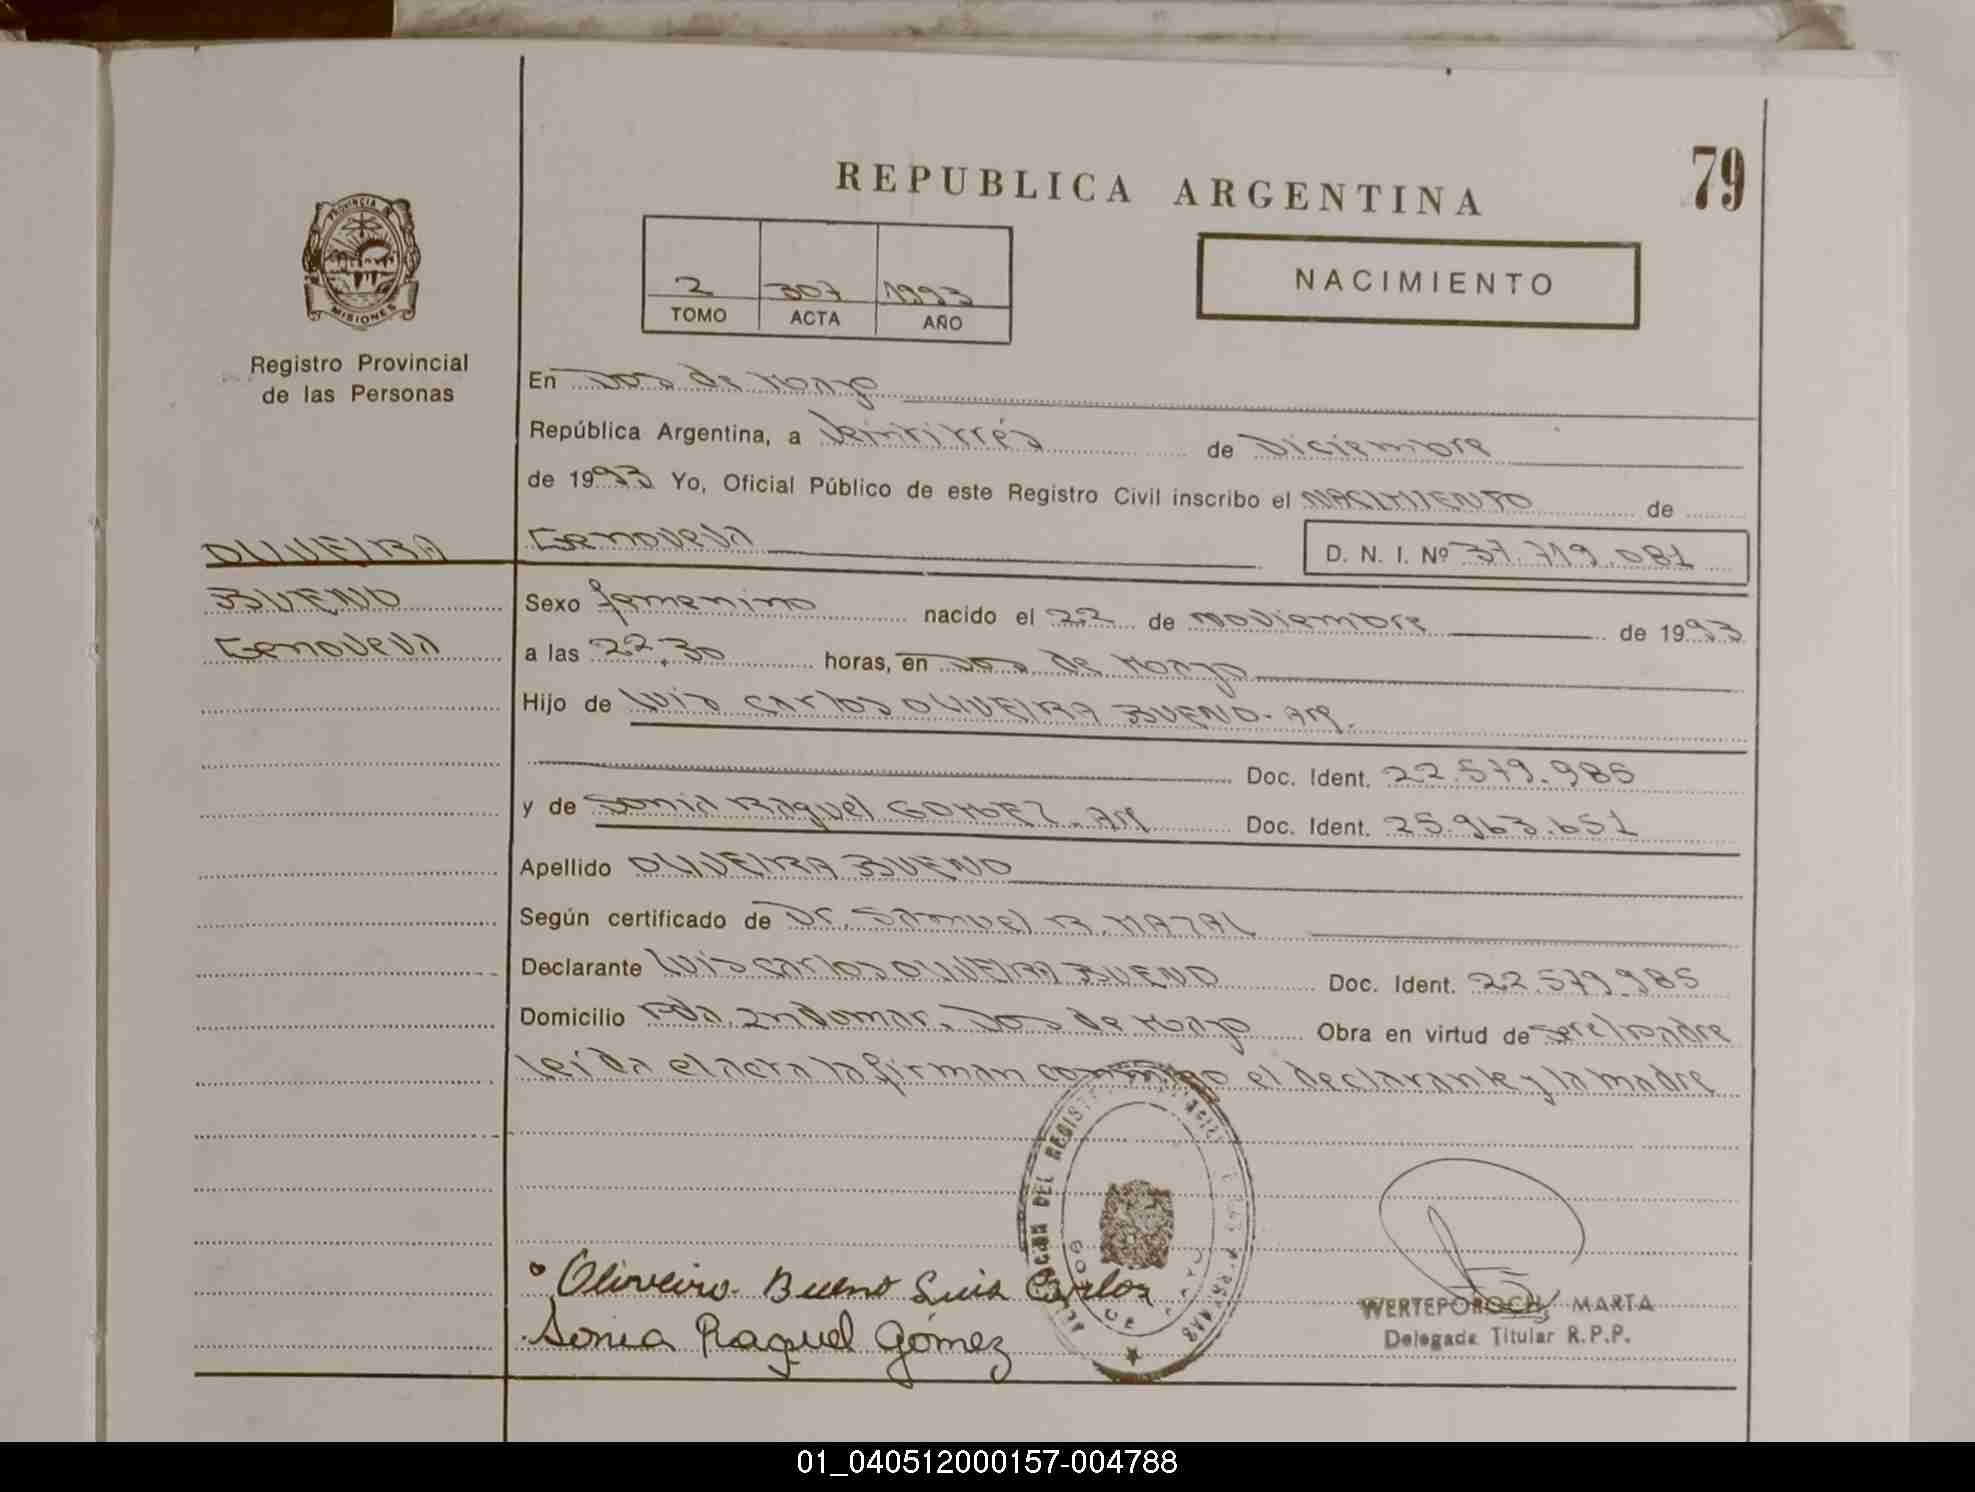 REPUBLICA ARGENTINA
79
PROVINCIA DE
MISIONES
Registro Provincial
de las Personas
2 307 1993
TOMO ACTA AÑO
NACIMIENTO
En Dos de Mayo
República Argentina, a Veintitrés de Diciembre
de 1993 Yo, Oficial Público de este Registro Civil inscribo el NACIMIENTO de
OLIVEIRA
BUENO
Genoveva
Genoveva D. N. I. Nº 37.719.081
Sexo femenino nacido el 22 de noviembre de 1993
a las 22.30 horas, en Dos de Mayo
Hijo de Luis Carlos OLIVEIRA BUENO- Arg.
Doc. Ident. 22.579.985
y de Sonia Raquel GOMEZ. Doc. Ident. 25.963.651
Apellido OLIVEIRA BUENO
Según certificado de Dr. Samuel R.
Declarante Luis Carlos OLIVEIRA BUENO Doc. Ident. 22.579.985
Domicilio Pda. Indumar. Dos de Mayo Obra en virtud de ser el padre
leída el acta la firman conmigo el declarante y la madre
Oliveira Bueno Luis Carlos
Sonia Raquel Gómez
DEL
WERTEPOROCH, MARTA
Delegada Titular R.P.P.
01_040512000157-004788